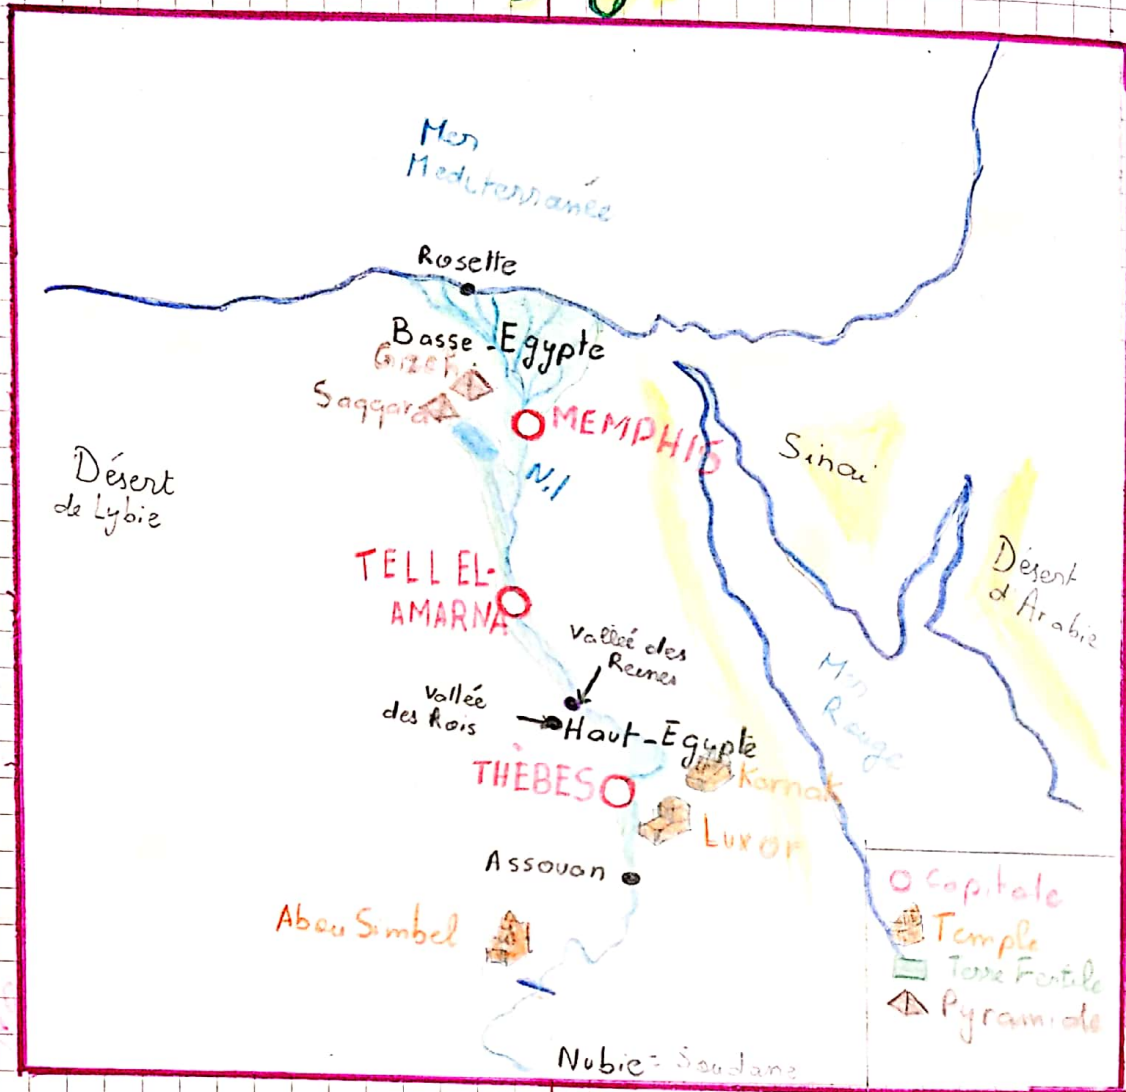 Mer
Mediterranée
Rosette
Basse-Egypte
Gizeh
Saqqara
MEMPHIS
Nil
Sinai
Désert
de Lybie
Désert
d'Arabie
TELL EL-
AMARNA
Valleé des
Reines
Vallée
des Rois
Haut-Egypte
Mer
Rouge
THÈBES
Karnak
Luxor
Assouan
Abou Simbel
Capitale
Temple
Terre Fertile
Pyramide
Nubie = Soudane